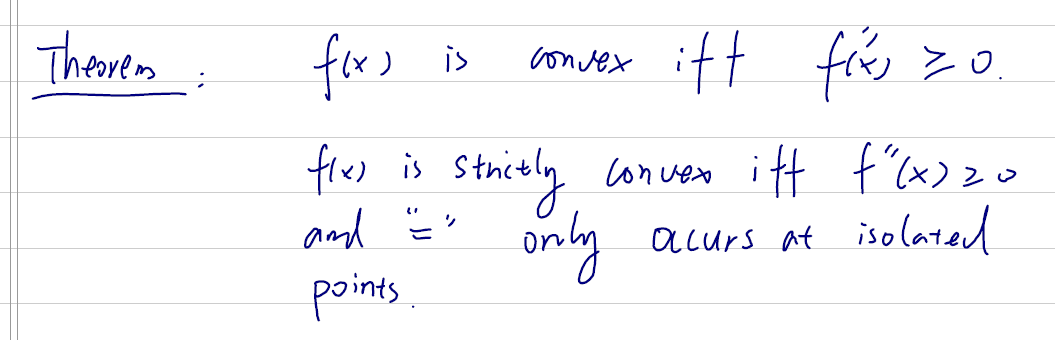 Theorem : f(x) is convex iff f''(x) ≥ 0.
f(x) is strictly convex iff f''(x) ≥ 0
and "=" only occurs at isolated
points.